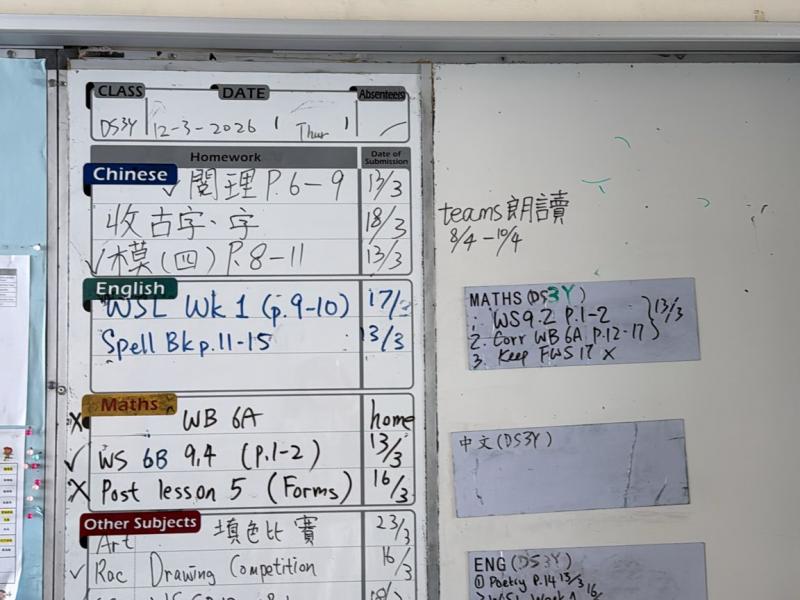 CLASS DATE Absentees
DS3Y 12-3-2026 Thur
Homework Date of Submission
Chinese
✓ 閱理 P.6-9 13/3
收古字、字 18/3
✓ 模(四) P.8-11 13/3
English
WSL Wk 1 (p.9-10) 17/3
Spell Bk p.11-15 13/3
Maths
X WB 6A home
✓ WS 6B 9.4 (p.1-2) 13/3
X Post lesson 5 (Forms) 16/3
Other Subjects
Art 填色比賽 23/3
✓ Roc Drawing Competition 16/3
teams 朗讀
8/4-10/4
MATHS (DS3Y)
1. WS9.2 P.1-2
2. Corr WB 6A P.12-17 } 13/3
3. Keep FWS 17 X
中文(DS3Y)
ENG (DS3Y)
① Poetry P.14 13/3